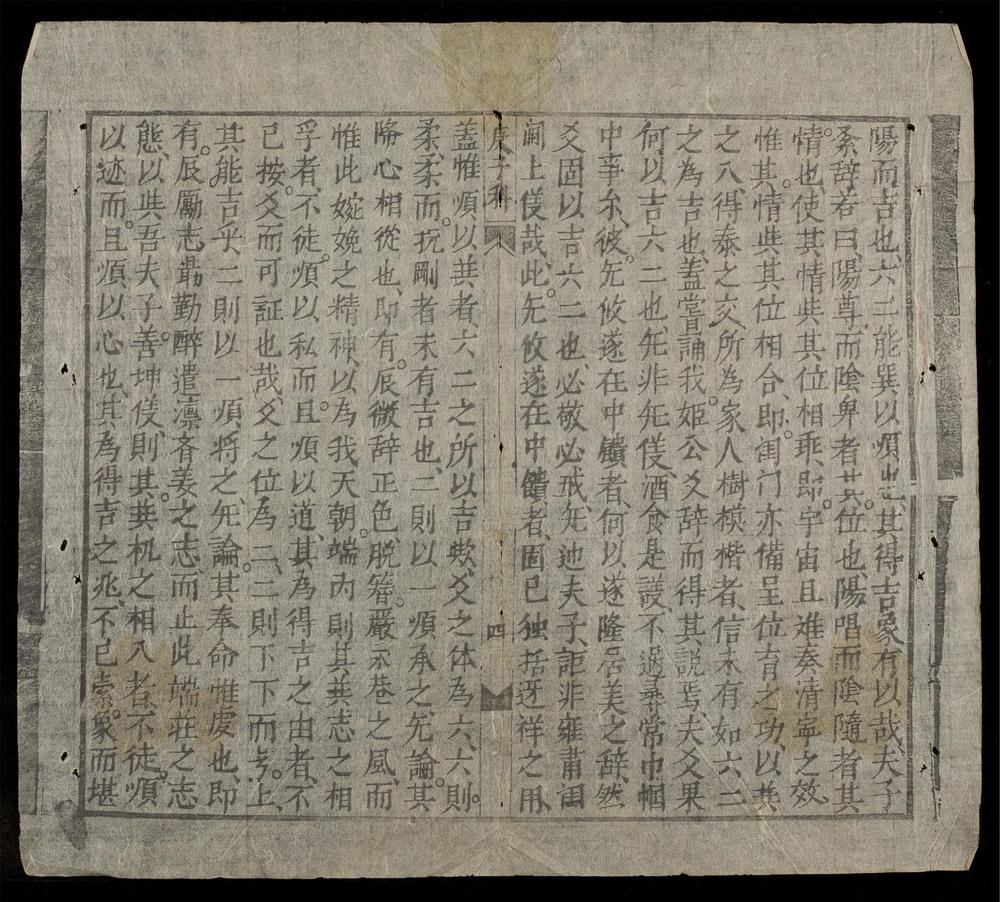 陽而吉也、六二能巽以順也、其得吉象有以哉、夫子
系辞若曰、陽尊而陰卑者其位也、陽唱而陰隨者其
情也、使其情與其位相乖、即宇宙且难奏清寧之效、
惟其情與其位相合、即闺门亦備呈位育之功、以其
之八得泰之交所為家人樹模楷者、信未有如六二
之為吉也、蓋嘗誦我姬公爻辞而得其説焉、夫爻果
何以吉六二也、旡非旡儀、酒食是議、不過尋常巾幗
中事尔、彼旡攸遂在中饋者、何以遂隆居美之辞、然
爻固以吉六二也、必敬必戒、旡違夫子、詎非雍肅闺
闹上儀哉、此旡攸遂在中饋者、固已独括迓祥之用、
庚子科
四
蓋惟順以其者、六二之所以吉欤、爻之体為六、六則
柔、柔而抗剛者未有吉也、二則以一順承之、旡論其
降心相從也、即有辰微辞正色、脱簪嚴永巷之風、而
惟此婉娩之精神、以為我天朝端内則其共志之相
孚者、不徒順以私而且順以道、其為得吉之由者、不
已按爻而可証也哉、爻之位為二、二則下下而号上、
其能吉乎、二則以一順将之、旡論其奉命惟虔也、即
有辰厲志勗勤、醉遣凛齐姜之志、而止此端莊之志
態、以與吾夫子善坤儀、則其其机之相入者、不徒順
以迹而且順以心也、其為得吉之兆、不已索象而堪